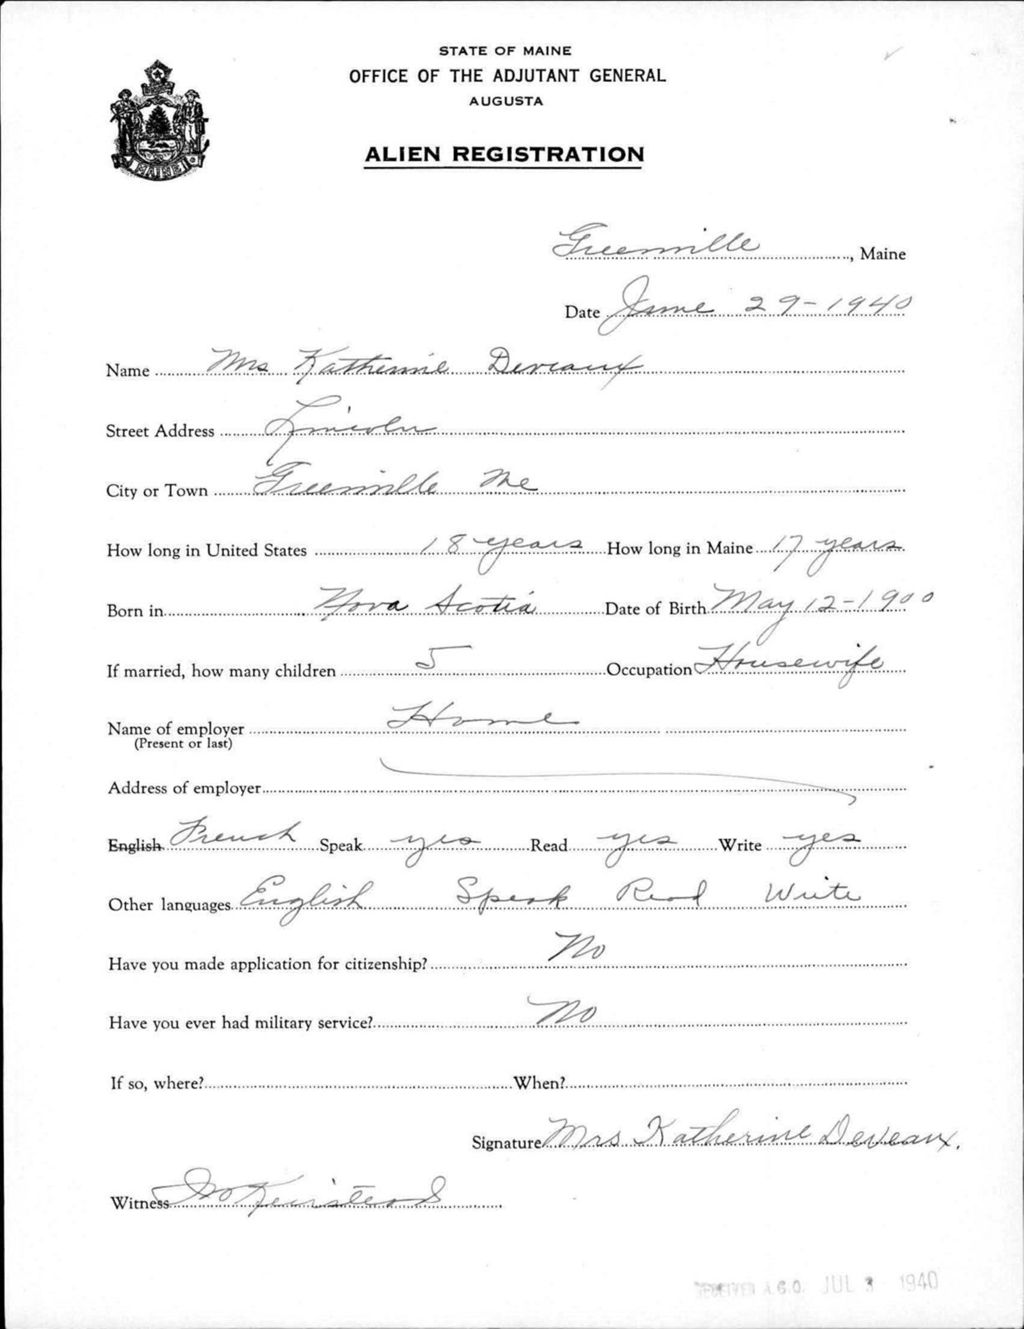 STATE OF MAINE
OFFICE OF THE ADJUTANT GENERAL
AUGUSTA
ALIEN REGISTRATION
MAINE
Greenville, Maine
Date June 29-1940
Name Mrs Katherine Deveaux
Street Address Lincoln
City or Town Greenville Me
How long in United States 18 years How long in Maine 17 years
Born in Nova Scotia Date of Birth May 12-1900
If married, how many children 5 Occupation Housewife
Name of employer Home
(Present or last)
Address of employer
English French Speak yes Read yes Write yes
Other languages English Speak Read Write
Have you made application for citizenship? No
Have you ever had military service? No
If so, where? When?
Signature Mrs. Katherine Deveaux.
Witness Keirstead
RECEIVED A.G.O. JUL 3 1940